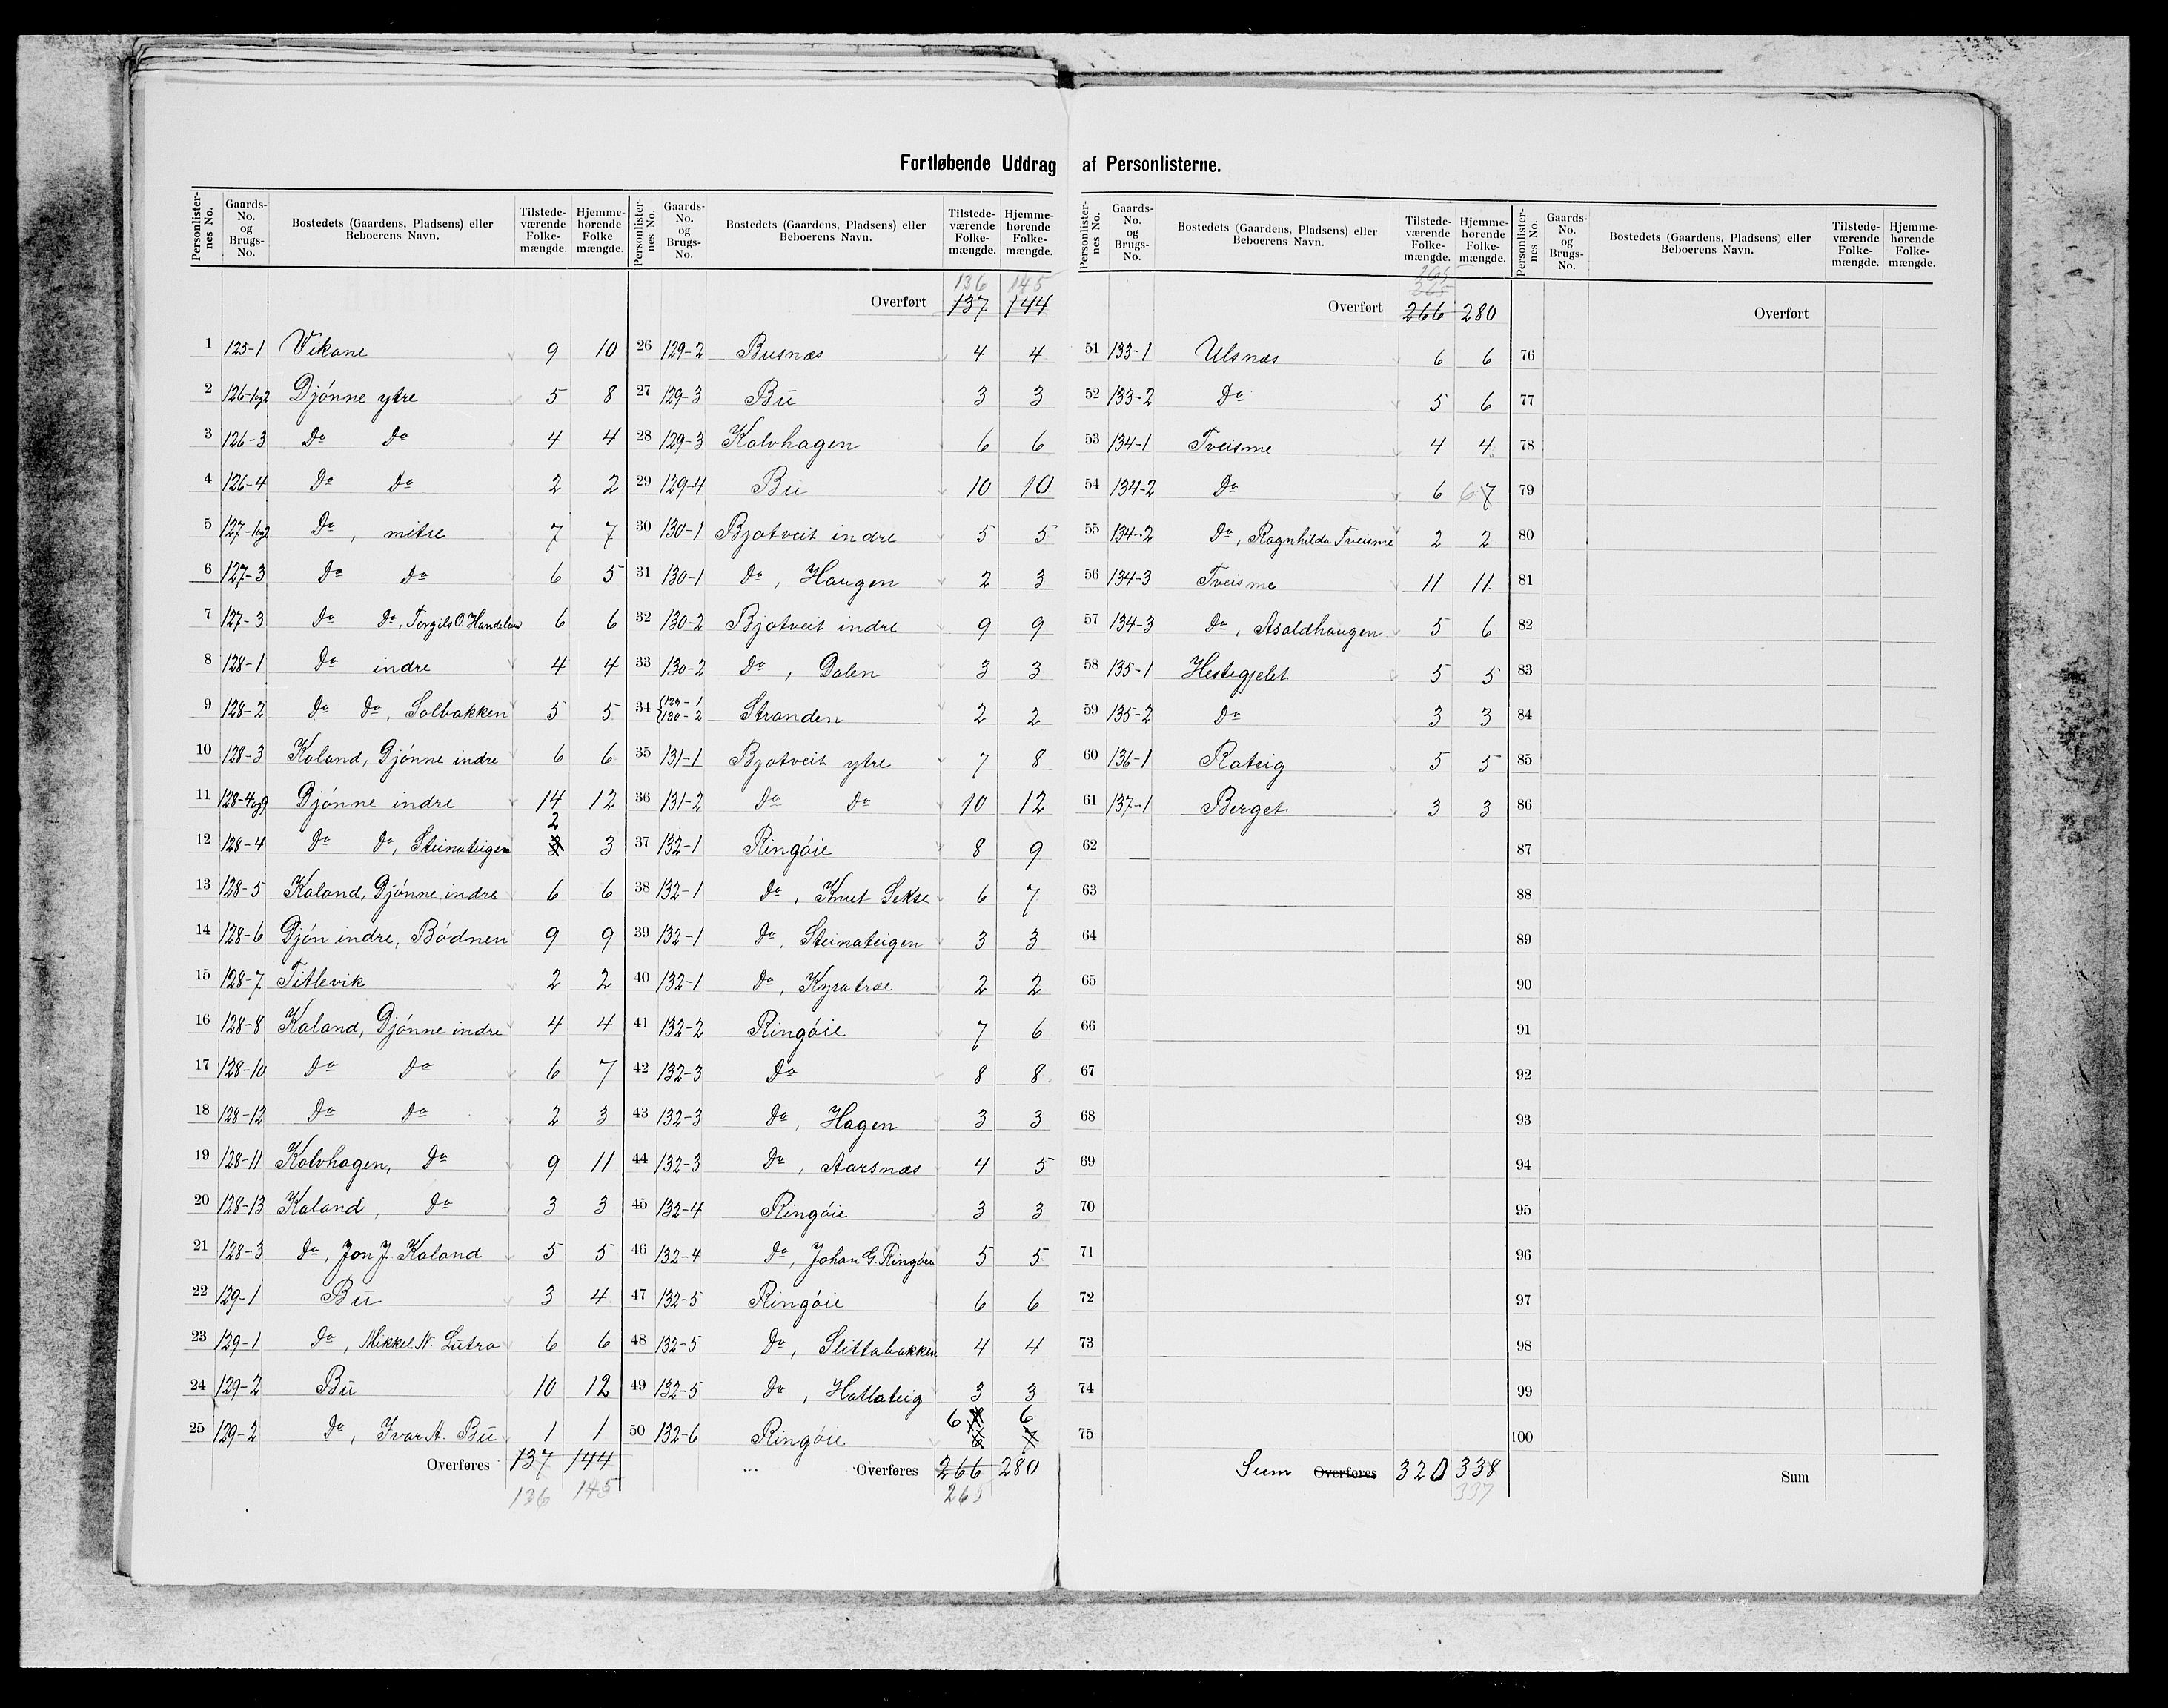 Fortløbende Uddrag af Personlisterne.
Personlister-nes No. | Gaards-No. og Brugs-No. | Bostedets (Gaardens, Pladsens) eller Beboerens Navn. | Tilstede-værende Folke-mængde. | Hjemme-hørende Folke mængde.
1 125-1 Vikane 9 10
2 126-1og2 Djónne ytre 5 8
3 126-3 Do Do 4 4
4 126-4 Do Do 2 2
5 127-1og2 Do, mitre 7 7
6 127-3 Do Do 6 5
7 127-3 Do Do, Torgils O. Handelsm 6 6
8 128-1 Do indre 4 4
9 128-2 Do Do, Solbakken 5 5
10 128-3 Kaland, Djónne indre 6 6
11 128-4og9 Djónne indre 14 12
12 128-4 Do Do, Steinateigen 2 3
13 128-5 Kaland, Djónne indre 6 6
14 128-6 Djón indre, Bódnen 9 9
15 128-7 Titlevik 2 2
16 128-8 Kaland, Djónne indre 4 4
17 128-10 Do Do 6 7
18 128-12 Do Do 2 3
19 128-11 Kalvhagen, Do 9 11
20 128-13 Kaland, Do 3 3
21 128-3 Do, Jon J. Kaland 5 5
22 129-1 Bū 3 4
23 129-1 Do, Mikkel N. Lūtro 6 6
24 129-2 Bū 10 12
25 129-2 Do, Ivar A. Bū 1 1
Overføres 137 144
136 145
Personlister-nes No. | Gaards-No. og Brugs-No. | Bostedets (Gaardens, Pladsens) eller Beboerens Navn. | Tilstede-værende Folke-mængde. | Hjemme-hørende Folke-mængde.
136 145
Overført 137 144
26 129-2 Busnæs 4 4
27 129-3 Bū 3 3
28 129-3 Kalvhagen 6 6
29 129-4 Bū 10 10
30 130-1 Bjotveit indre 5 5
31 130-1 Do, Haugen 2 3
32 130-2 Bjotveit indre 9 9
33 130-2 Do, Dalen 3 3
34 129-1 130-2 Stranden 2 2
35 131-1 Bjotveit ytre 7 8
36 131-2 Do Do 10 12
37 132-1 Ringóie 8 9
38 132-1 Do, Knut Sekse 6 7
39 132-1 Do, Steinateigen 3 3
40 132-1 Do, Kyratræ 2 2
41 132-2 Ringóie 7 6
42 132-3 Do 8 8
43 132-3 Do, Hagen 3 3
44 132-3 Do, Aarsnæs 4 5
45 132-4 Ringóie 3 3
46 132-4 Do, Johan G. Ringóen 5 5
47 132-5 Ringóie 6 6
48 132-5 Do, Slittabakken 4 4
49 132-5 Do, Hallateig 3 3
50 132-6 Ringóie 6 6
Overføres 266 280
265
Personlister-nes No. | Gaards-No. og Brugs-No. | Bostedets (Gaardens, Pladsens) eller Beboerens Navn. | Tilstede-værende Folke-mængde. | Hjemme-hørende Folke-mængde.
265
Overført 266 280
51 133-1 Ulsnæs 6 6
52 133-2 Do 5 6
53 134-1 Tveisme 4 4
54 134-2 Do 6 6 7
55 134-2 Do, Ragnhilda Tveisme 2 2
56 134-3 Tveisme 11 11
57 134-3 Do, Asaldhaugen 5 6
58 135-1 Hestegjelet 5 5
59 135-2 Do 3 3
60 136-1 Rateig 5 5
61 137-1 Berget 3 3
62
63
64
65
66
67
68
69
70
71
72
73
74
75
Sum Overføres 320 338
337
Personlister-nes No. | Gaards-No. og Brugs-No. | Bostedets (Gaardens, Pladsens) eller Beboerens Navn. | Tilstede-værende Folke-mængde. | Hjemme-hørende Folke-mængde.
Overført
76
77
78
79
80
81
82
83
84
85
86
87
88
89
90
91
92
93
94
95
96
97
98
99
100
Sum